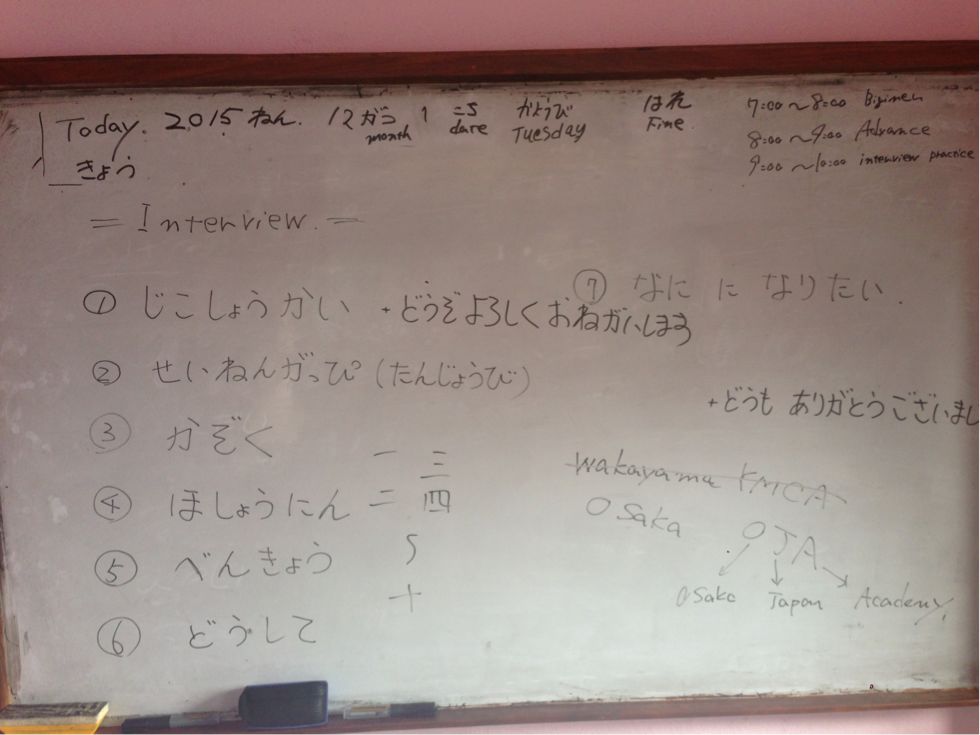 Today. 2015 ねん. 12 がつ 1 にち かようび はれ
きょう month dare Tuesday Fine.
7:00 ～ 8:00 Biginen
8:00 ～ 9:00 Advance
9:00 ～ 10:00 interview practice
= Interview. =
① じこしょうかい + どうぞよろしくおねがいします
② せいねんがっぴ (たんじょうび)
③ かぞく
④ ほしょうにん
⑤ べんきょう
⑥ どうして
一 三
二 四
～
十
⑦ なに に なりたい.
+ どうも ありがとうございまし
Wakayama YMCA
Osaka
OJA
Osaka Japan Academy.